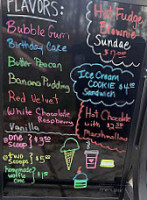 FLAVORS:
Bubble Gum
Birthday Cake
Butter Pecan
Banana Pudding
Red Velvet
White Chocolate
Raspberry
Vanilla
one
scoop
two
scoops
homemade
waffle
cone
$1.00
Hot Fudge
Brownie
Sundae
Ice Cream
COOKIE
Sandwich
Hot Chocolate
with
Marshmallow